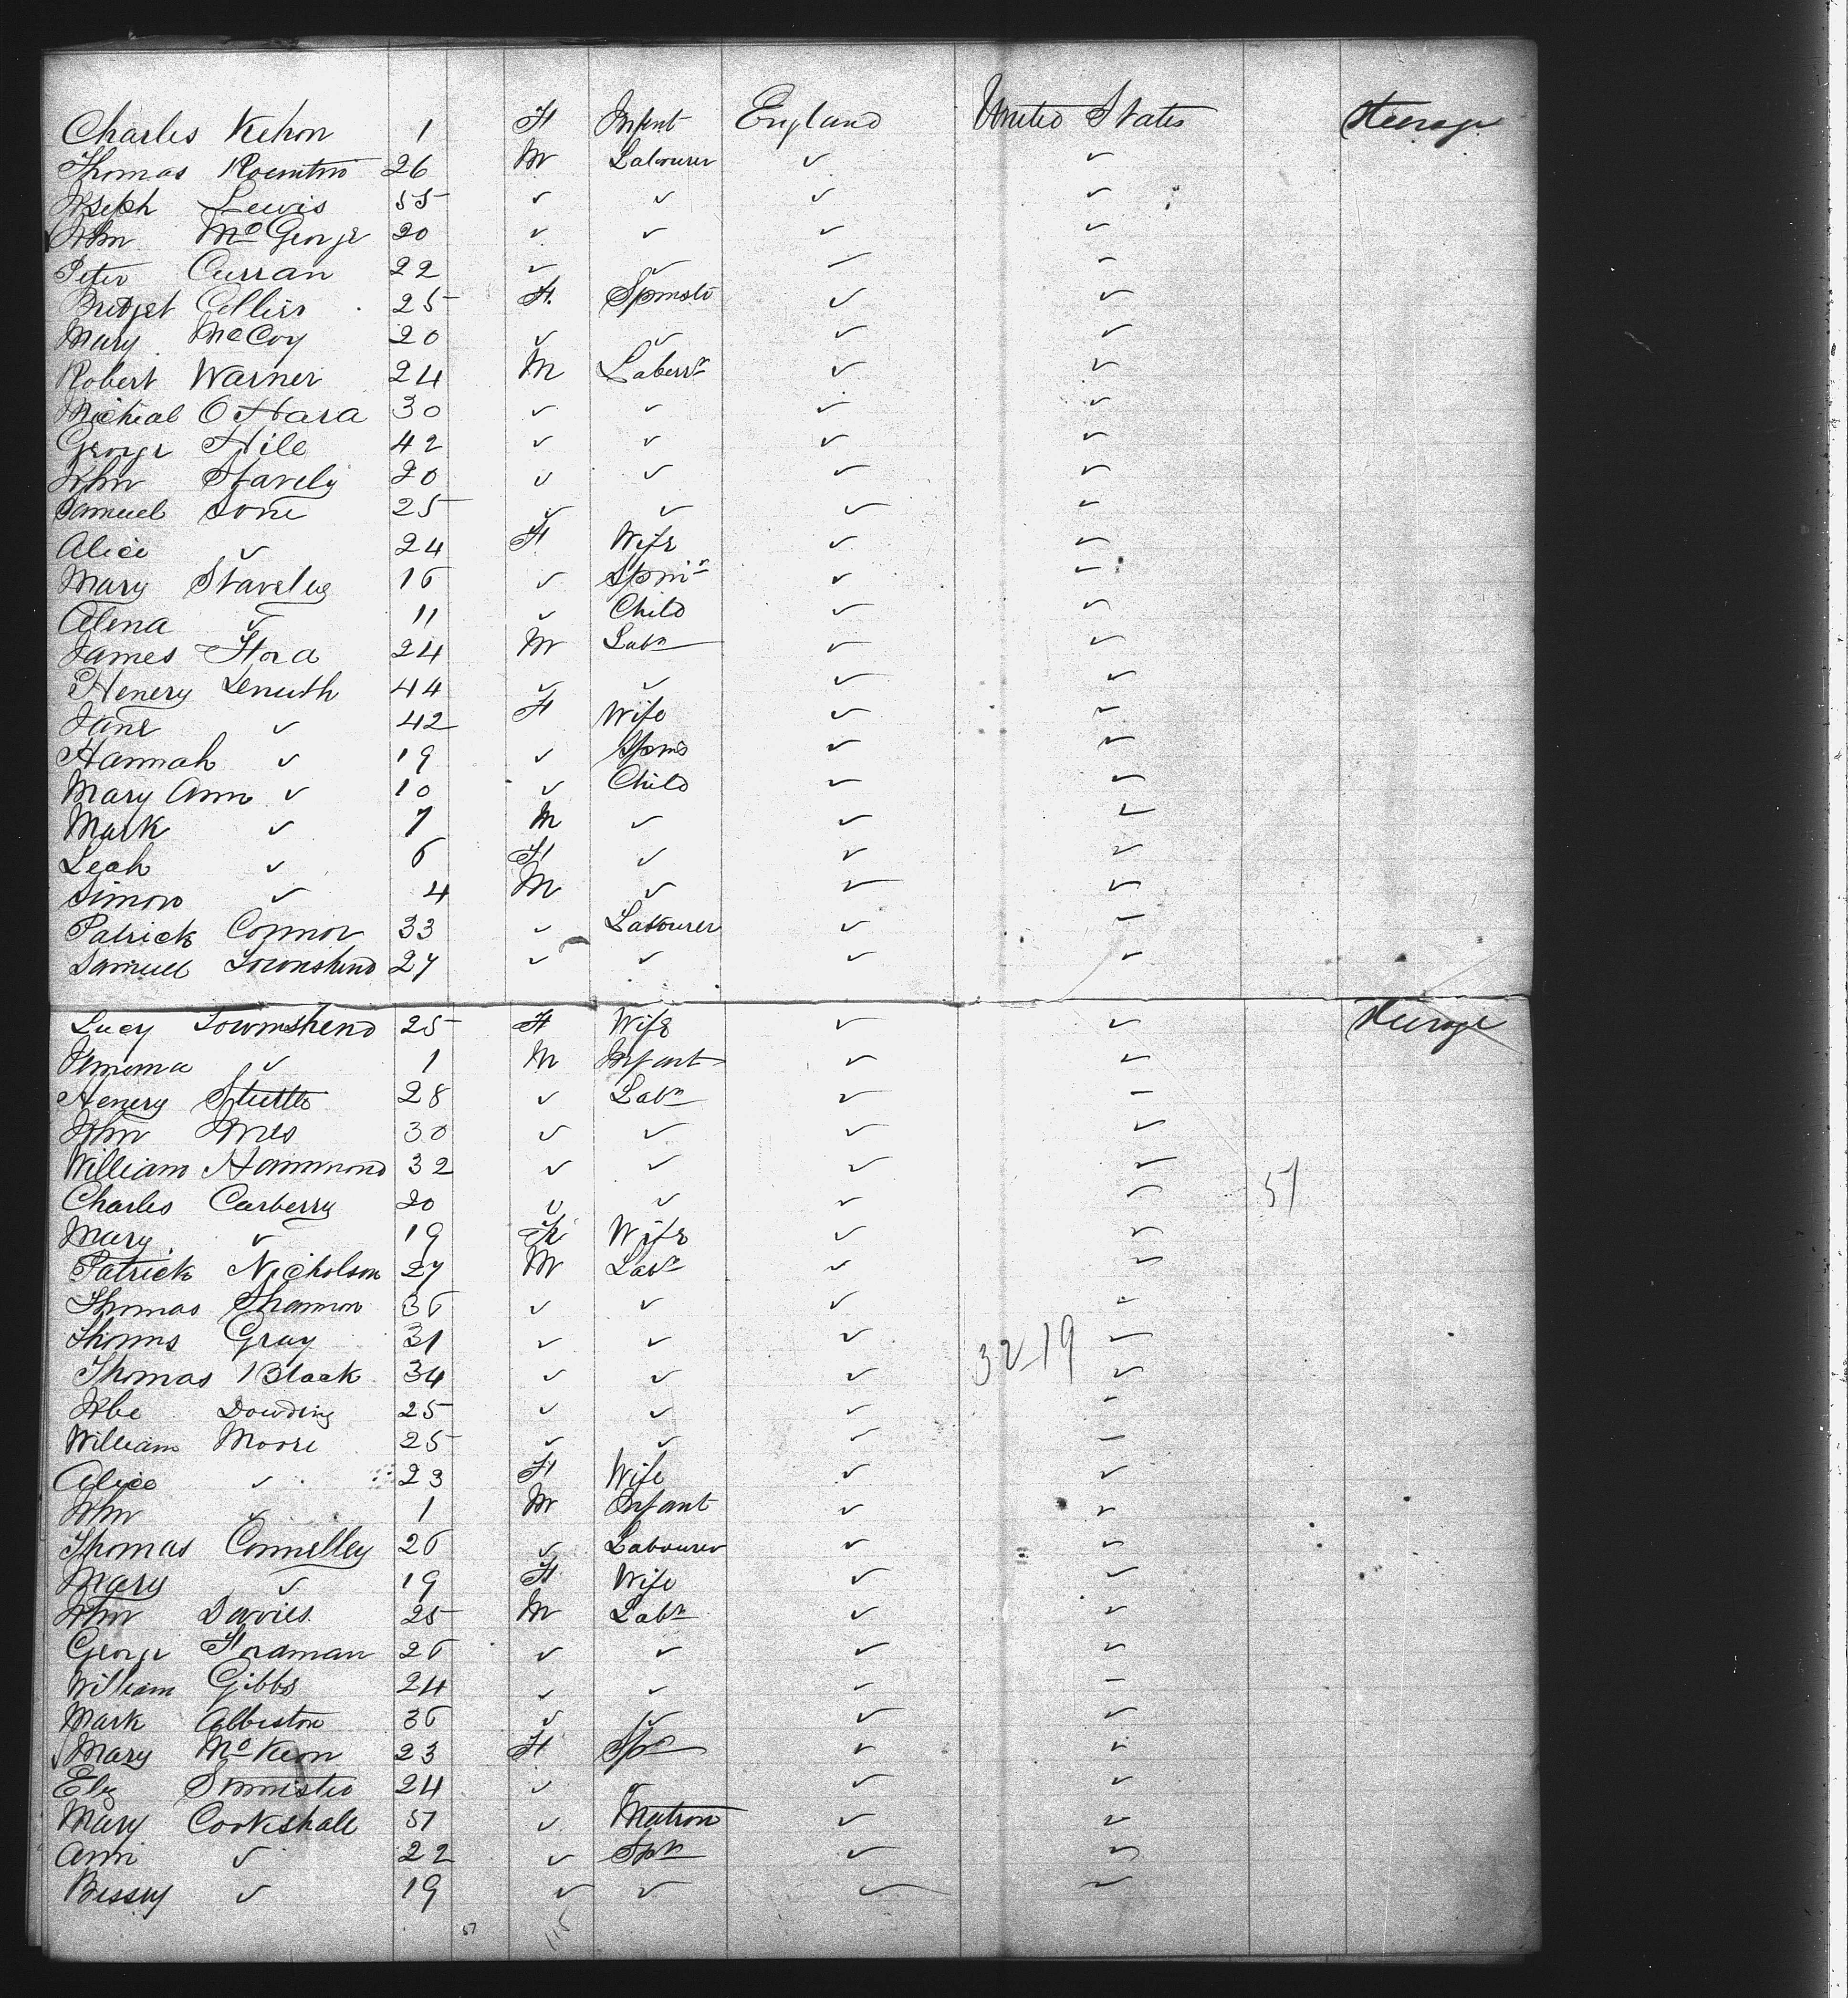 Charles Kehon 1 F Infent England United States Steerage
Thomas 26 M Labourer ✓ ✓
Joseph Lewis 55 ✓ ✓ ✓ ✓
John McGeorge 20 ✓ ✓ ✓ ✓
Peter Curran 22 ✓ ✓ ✓ ✓
Bridget Collier 25 F. Spinstr ✓ ✓
Mary McCoy 20 ✓ ✓ ✓ ✓
Robert Warner 24 M Laberr ✓ ✓
Micheal O Hara 30 ✓ ✓ ✓ ✓
George Hile 42 ✓ ✓ ✓ ✓
John Stavely 20 ✓ ✓ ✓ ✓
Samuel Sone 25 ✓ ✓ ✓ ✓
Alice ✓ 24 F Wife ✓ ✓
Mary Staveley 16 ✓ Spinr ✓ ✓
Alena ✓ 11 ✓ Child ✓ ✓
James Ford 24 M Labr ✓ ✓
Henery 44 ✓ ✓ ✓ ✓
Jane ✓ 42 F Wife ✓ ✓
Hannah ✓ 19 ✓ Spins ✓ ✓
Mary Ann ✓ 10 ✓ Child ✓ ✓
Mark ✓ 7 M ✓ ✓ ✓
Leah ✓ 6 F ✓ ✓ ✓
Simon ✓ 4 M ✓ ✓ ✓
Patrick Connor 33 ✓ Labourer ✓ ✓
Samuel Townshend 27 ✓ ✓ ✓ ✓
Lucy Townshend 25 F Wife ✓ ✓ Steerage
Jemima ✓ 1 M Infant ✓ ✓
Henery 28 ✓ Labr ✓ ✓
John 30 ✓ ✓ ✓ ✓
William Hammond 32 ✓ ✓ ✓ ✓ 51
Charles Carberry 20 ✓ ✓ ✓ ✓
Mary ✓ 19 F Wife ✓ ✓
Patrick Nicholson 27 M Labr ✓ ✓
Thomas Shannon 36 ✓ ✓ ✓ ✓
Thoms Gray 31 ✓ ✓ ✓ 32-19 ✓
Thomas Black 34 ✓ ✓ ✓ ✓
Dowding 25 ✓ ✓ ✓ ✓
William Moore 25 ✓ ✓ ✓ ✓
Alice ✓ 23 F Wife ✓ ✓
John ✓ 1 M Infant ✓ ✓
Thomas Connelley 26 ✓ Labourer ✓ ✓
Mary ✓ 19 F Wife ✓ ✓
John Davies 25 M Labr ✓ ✓
George Fordman 26 ✓ ✓ ✓ ✓
William Gibbs 24 ✓ ✓ ✓ ✓
Mark Albiston 36 ✓ ✓ ✓ ✓
Mary McKeon 23 F Spr ✓ ✓
Elz 24 ✓ ✓ ✓ ✓
Mary Cookshall 51 ✓ Matron ✓ ✓
Ann ✓ 22 ✓ Spn ✓ ✓
Bessey ✓ 19 ✓ ✓ ✓ ✓
57 115